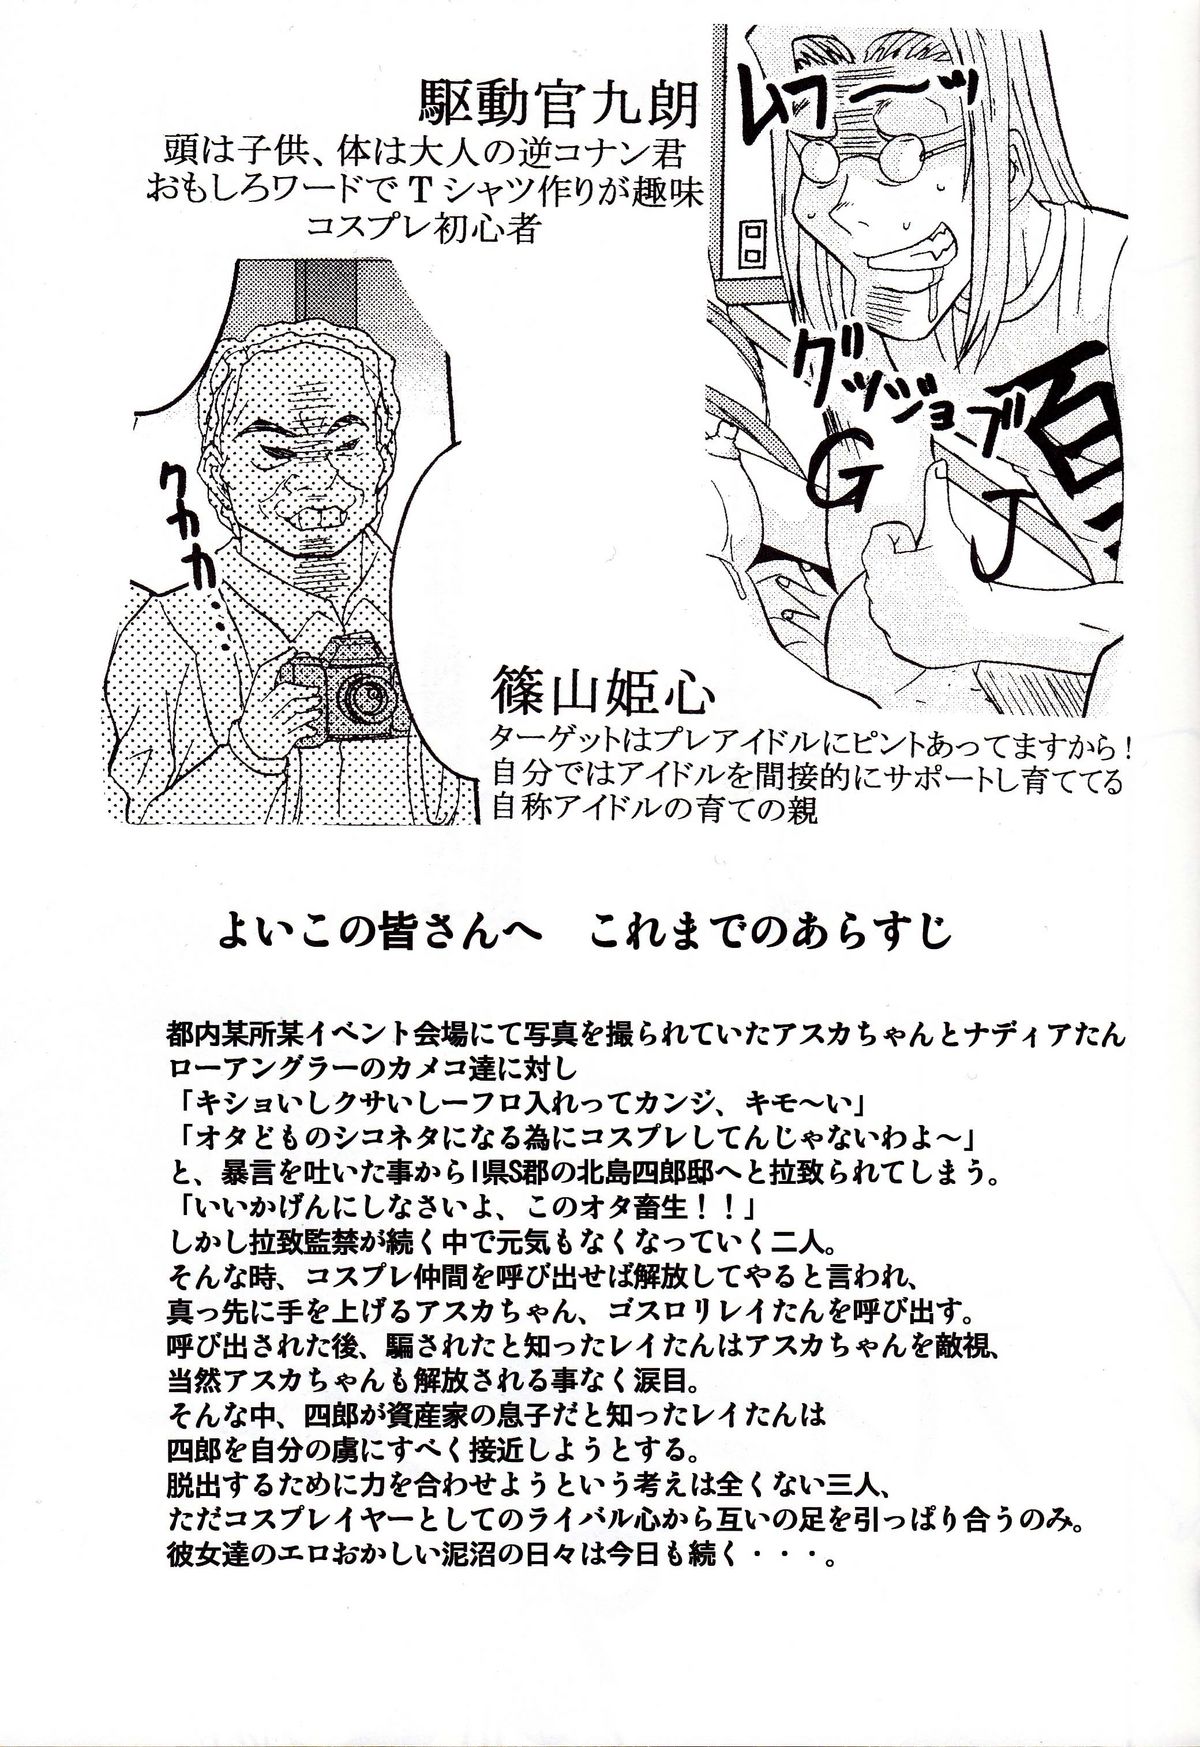 駆動官九朗
頭は子供、体は大人の逆コナン君
おもしろワードでTシャツ作りが趣味
コスプレ初心者
ムフ〜ッ
グッジョブ
G
J
百
クカカ・・・
篠山姫心
ターゲットはプレアイドルにピントあってますから!
自分ではアイドルを間接的にサポートし育ててる
自称アイドルの育ての親
よいこの皆さんへ　これまでのあらすじ
都内某所某イベント会場にて写真を撮られていたアスカちゃんとナディアたん
ローアングラーのカメコ達に対し
「キショいしクサいしーフロ入れってカンジ、キモ〜い」
「オタどものシコネタになる為にコスプレしてんじゃないわよ〜」
と、暴言を吐いた事からI県S郡の北島四郎邸へと拉致られてしまう。
「いいかげんにしなさいよ、このオタ畜生!!」
しかし拉致監禁が続く中で元気もなくなっていく二人。
そんな時、コスプレ仲間を呼び出せば解放してやると言われ、
真っ先に手を上げるアスカちゃん、ゴスロリレイたんを呼び出す。
呼び出された後、騙されたと知ったレイたんはアスカちゃんを敵視、
当然アスカちゃんも解放される事なく涙目。
そんな中、四郎が資産家の息子だと知ったレイたんは
四郎を自分の虜にすべく接近しようとする。
脱出するために力を合わせようという考えは全くない三人、
ただコスプレイヤーとしてのライバル心から互いの足を引っぱり合うのみ。
彼女達のエロおかしい泥沼の日々は今日も続く・・・。